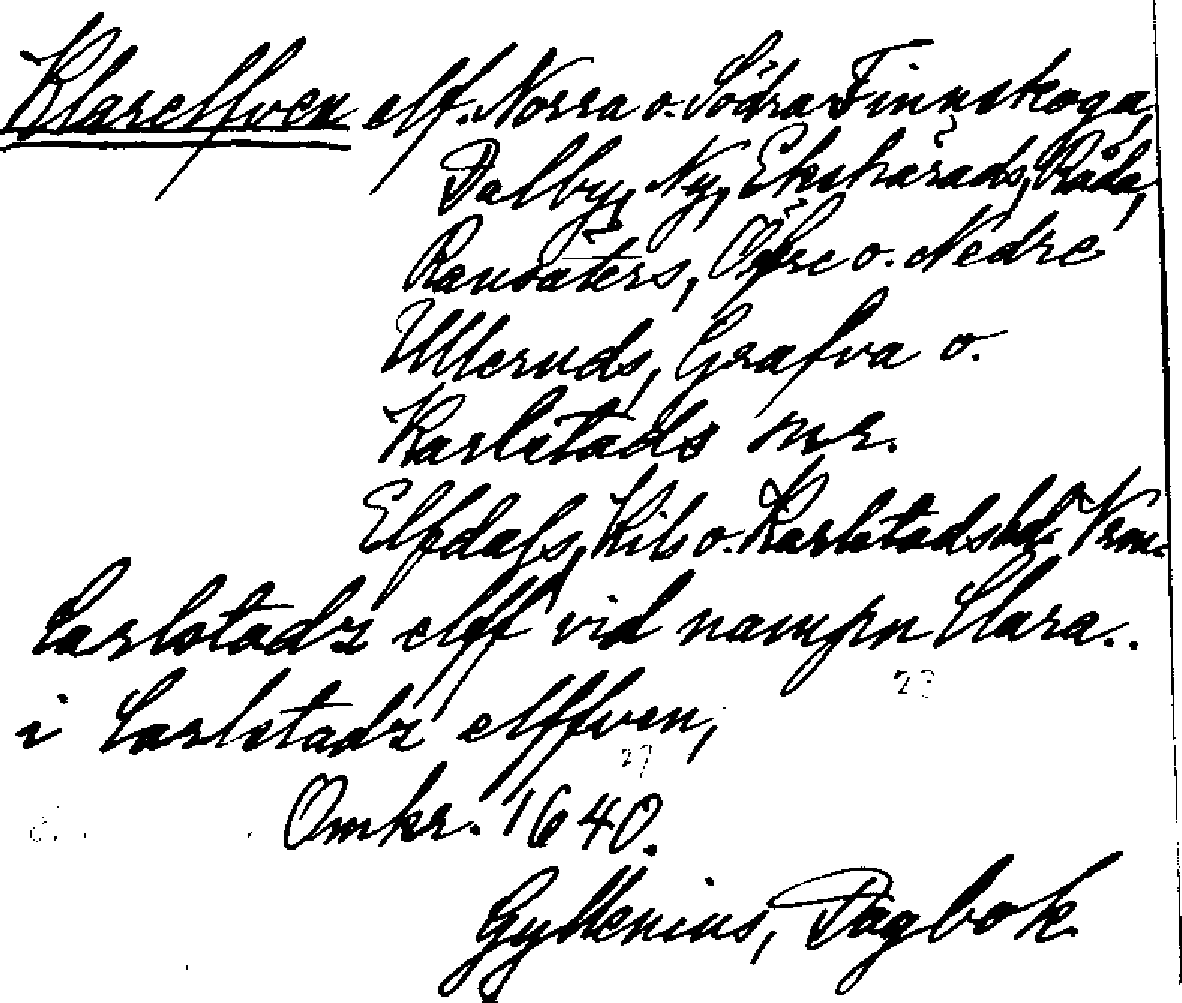 Klarelfven elf. Norra o. Södra Finnskoga,
Dalby, Ny, Ekshärads, Råda,
Ransäters, Öfre o. Nedre
Ulleruds, Grafva o.
Karlstads snr.
Elfdals, Kils o. Karlstads hd. Vrm.
Carlstadz elff vid nampn Clara..
23
i Carlstadz elffven,
27
Omkr. 1640.
Gyllenius, Dagbok